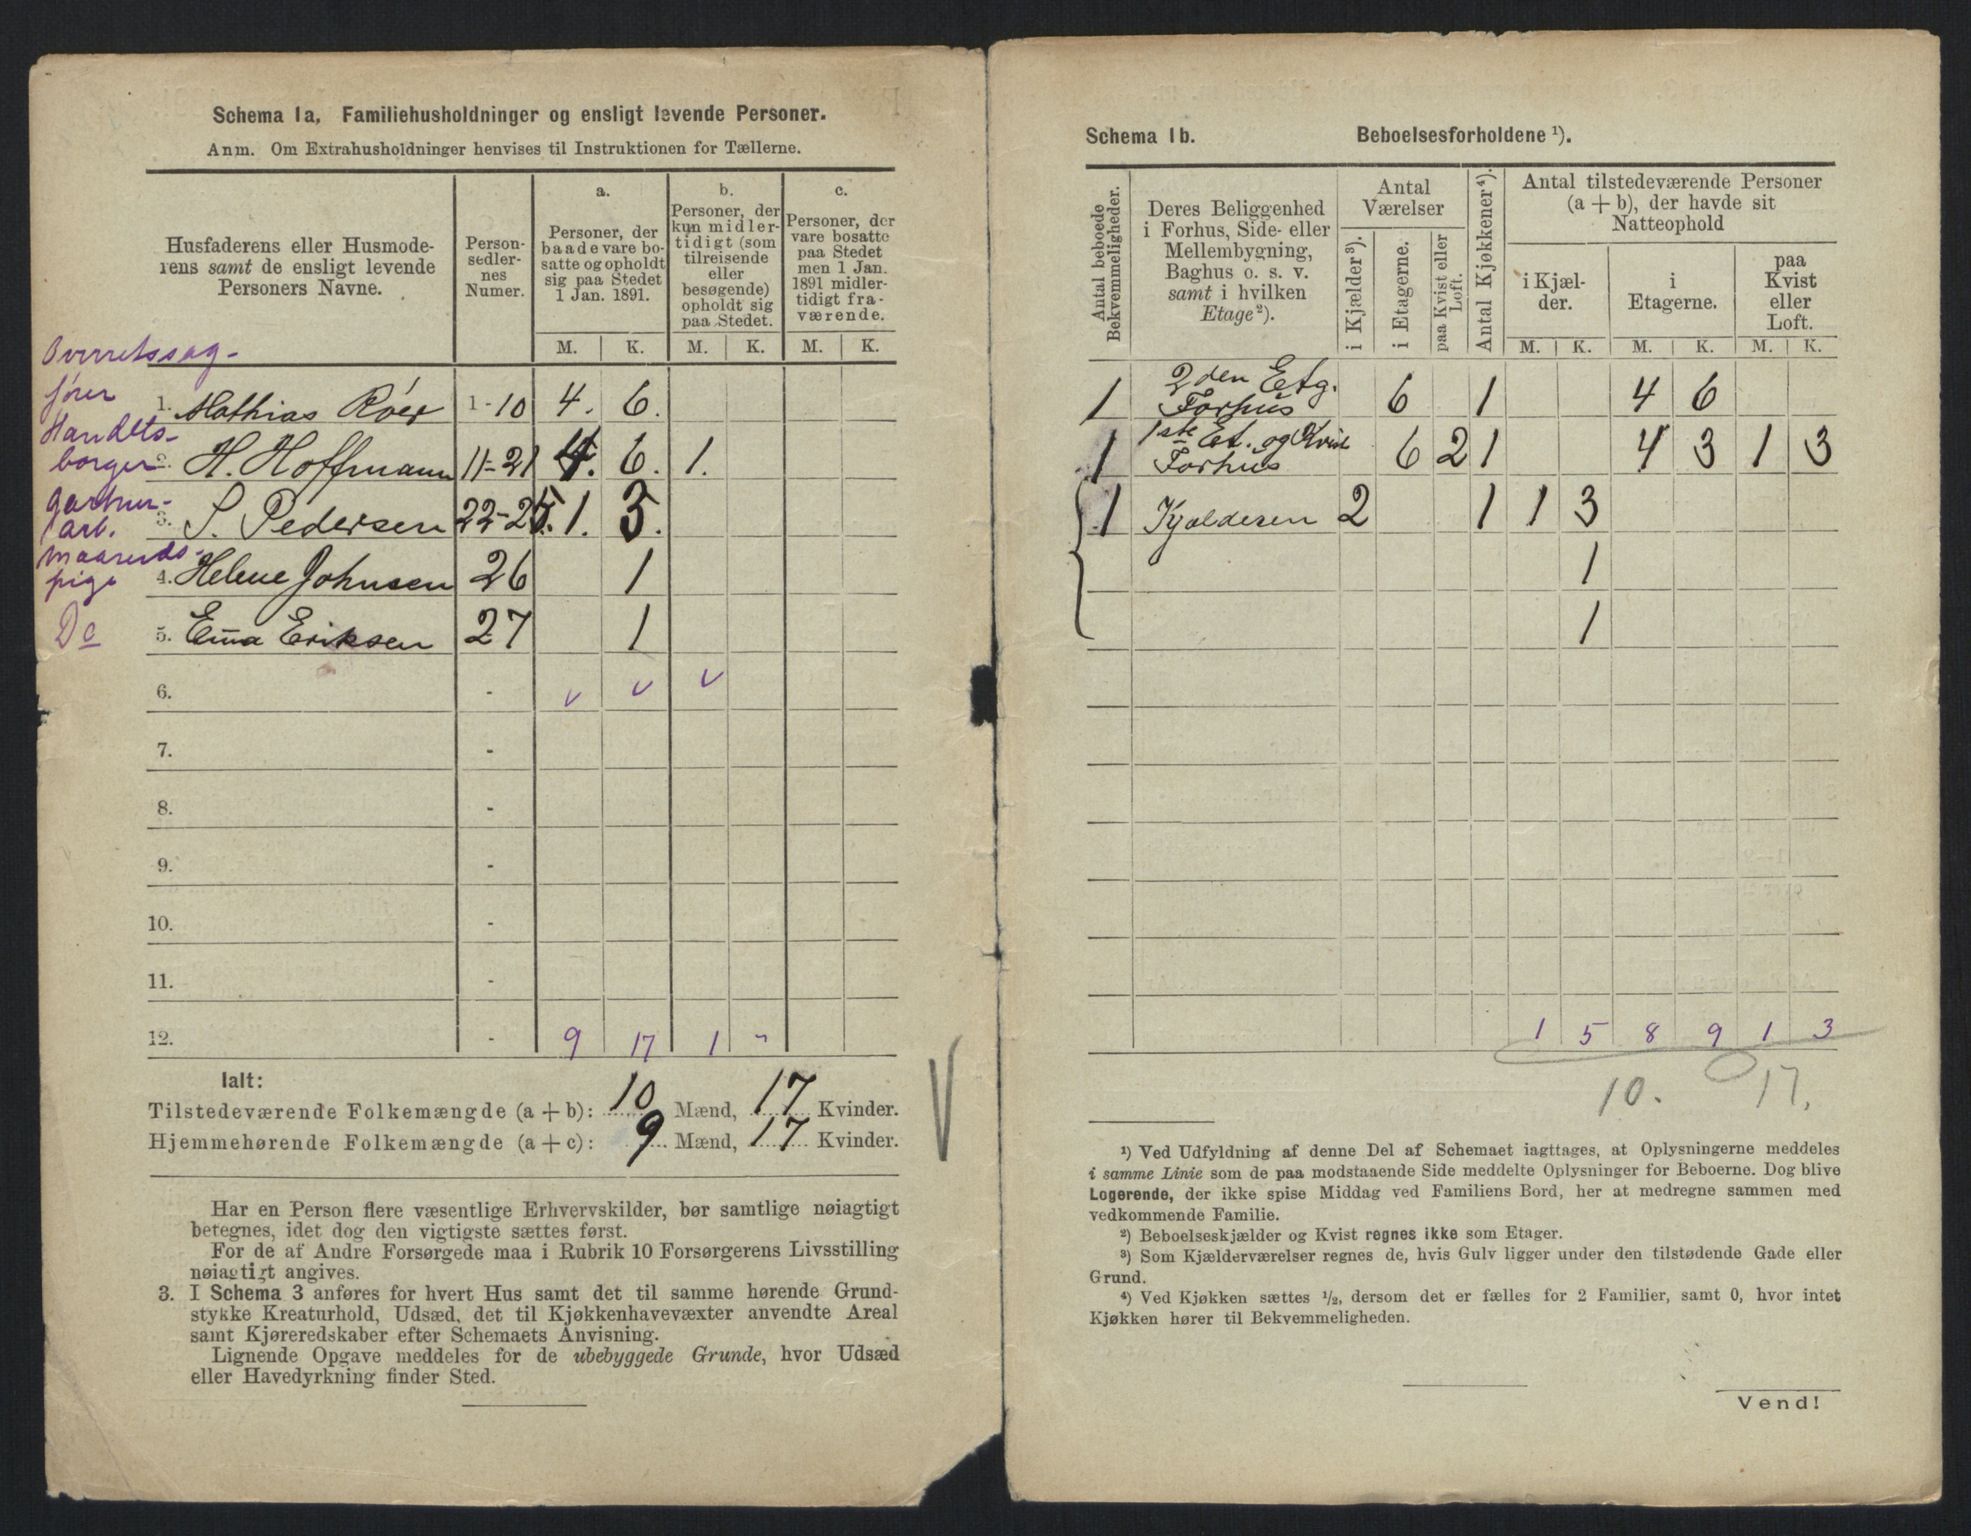 Schema 1a, Familiehusholdninger og ensligt levende Personer.
Anm. Om Extrahusholdninger henvises til Instruktionen for Tællerne.
Husfaderens eller Husmode-
rens samt de ensligt levende
Personers Navne.
Person-
sedler-
nes
Numer.
a.
Personer, der
baade vare bo-
satte og opholdt
sig paa Stedet
1 Jan. 1891.
b.
Personer, der
kun midler-
tidigt (som
tilreisende
eller
besøgende)
opholdt sig
paa Stedet.
c.
Personer, der
vare bosatte
paa Stedet
men 1 Jan.
1891 midler-
tidigt fra-
værende.
M. K. M. K. M. K.
Overretssag-
fører
1. Mathias Róer 1-10 4. 6.
Handels-
borger 2. H. Hoffmann 11-21 4. 6. 1.
Gartner-
arb. 3. S. Pedersen 22-25. 1. 3.
pige 4. Helene Johnsen 26 1
Do 5. Ema Eriksen 27 1
6. - v v v
7. -
8. -
9. -
10. -
11. -
12. - 9 17 1 -
Ialt:
Tilstedeværende Folkemængde (a + b): 10 Mænd, 17 Kvinder.
Hjemmehørende Folkemængde (a + c): 9 Mænd, 17 Kvinder.
Har en Person flere væsentlige Erhvervskilder, bør samtlige nøiagtigt
betegnes, idet dog den vigtigste sættes først.
For de af Andre Forsørgede maa i Rubrik 10 Forsørgerens Livsstilling
nøiagtigt angives.
3. I Schema 3 anføres for hvert Hus samt det til samme hørende Grund-
stykke Kreaturhold, Udsæd, det til Kjøkkenhavevæxter anvendte Areal
samt Kjøreredskaber efter Schemaets Anvisning.
Lignende Opgave meddeles for de ubebyggede Grunde, hvor Udsæd
eller Havedyrkning finder Sted.
Schema 1b. Beboelsesforholdene ¹).
Antal beboede
Bekvemmeligheder.
Deres Beliggenhed
i Forhus, Side- eller
Mellembygning,
Baghus o. s. v.
samt i hvilken
Etage²).
Antal
Værelser
i Kjælder³).
i Etagerne.
paa Kvist eller
Loft.
Antal Kjøkkener⁴).
Antal tilstedeværende Personer
(a + b), der havde sit
Natteophold
i Kjæl-
der.
i
Etagerne.
paa
Kvist
eller
Loft.
M. K. M. K. M. K.
2den Etg.
1 Forhus 6 1 4 6
1ste Et. og Kvist
1 Forhus 6 2 1 4 3 1 3
1 Kjælderen 2 1 1 3
1
1
1 5 8 9 1 3
10. 17.
¹) Ved Udfyldning af denne Del af Schemaet iagttages, at Oplysningerne meddeles
i samme Linie som de paa modstaaende Side meddelte Oplysninger for Beboerne. Dog blive
Logerende, der ikke spise Middag ved Familiens Bord, her at medregne sammen med
vedkommende Familie.
²) Beboelseskjælder og Kvist regnes ikke som Etager.
³) Som Kjælderværelser regnes de, hvis Gulv ligger under den tilstødende Gade eller
Grund.
⁴) Ved Kjøkken sættes ½, dersom det er fælles for 2 Familier, samt 0, hvor intet
Kjøkken hører til Bekvemmeligheden.
Vend!